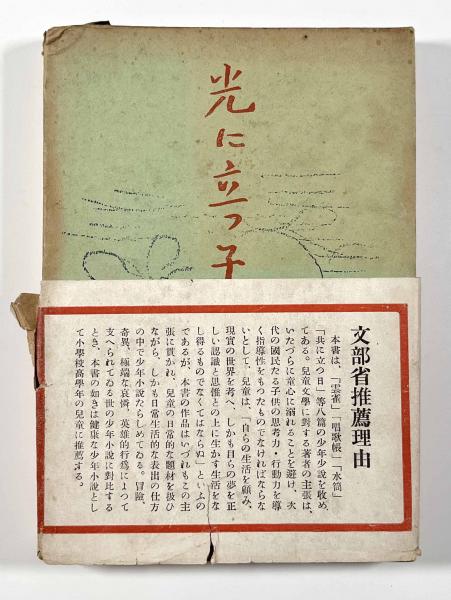 光に立つ子
文部省推薦理由
本書は、「雲雀」「唱歌帳」「水筒」
「共に立つ日」等八篇の少年少説を收め、
てある。兒童文學に對する著者の主張は、
いたづらに童心に溺れることを避け、次
代の國民たる子供の思考力・行動力を導
く指導性をもつたものでなければならな
いとして、兒童は、「自らの生活を顧み、
現實の世界を考へ、しかも自らの夢を正
しい認識と思惟との上に生かす生活をな
し得るものでなくてはならぬ」といふの
であるが、本書の作品はいづれもこの主
張に貫かれ、兒童の日常的な題材を扱ひ
ながら、しかも日常生活的な表出の仕方
の中で少年小説たらしめてゐる。冒險、
奇異、極端な哀憐、英雄的行爲によつて
支へられてゐる世の少年小説に對比する
とき、本書の如きは健康な少年小説とし
て小學校高學年の兒童に推薦する。